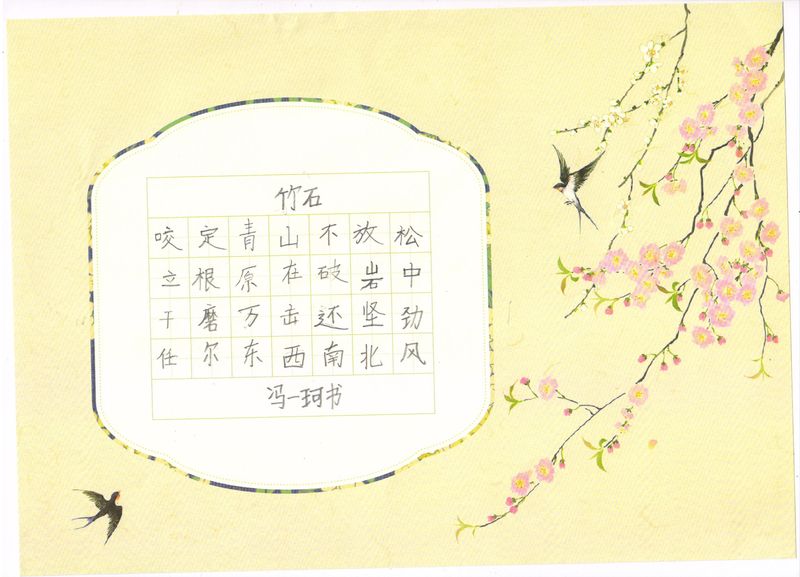 竹石
咬定青山不放松
立根原在破岩中
干磨万击还坚劲
任尔东西南北风
冯一珂书